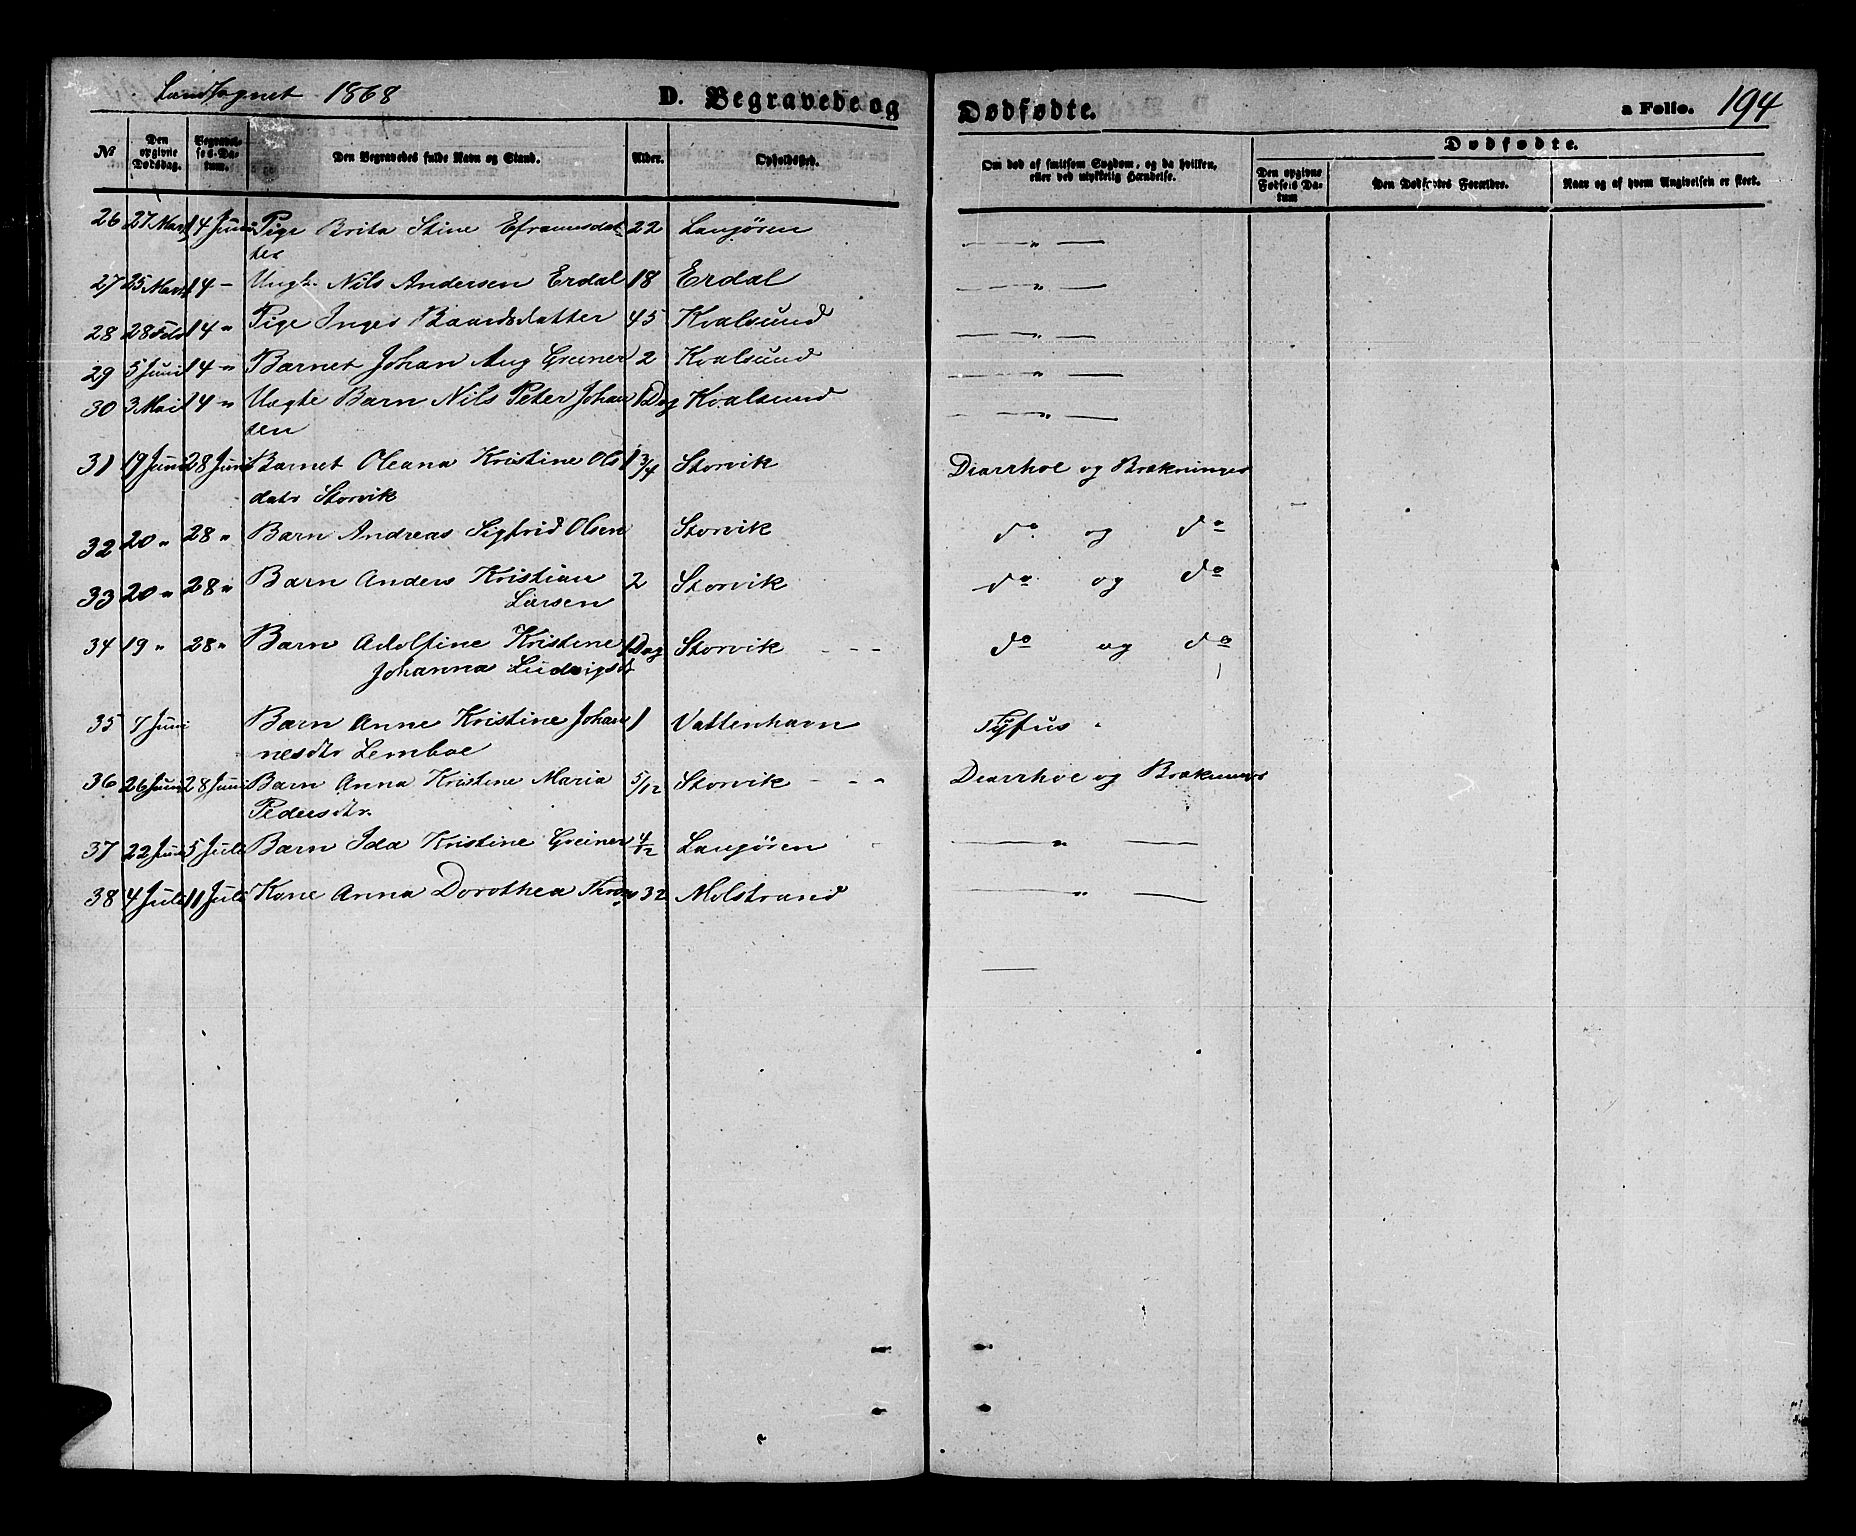 Landsognet 1868
D. Begravede og Dødfødte.
a Folio. 194
No
Den opgivne Dødsdag.
Begravelses-Datum.
Den Begravedes fulde Navn og Stand.
Alder.
Opholdssted.
Om død af smitsom Sygdom, og da hvilken, eller ved ulykkelig Hændelse.
Dødfødte.
Den opgivne Fødsels Datum
Den Dødfødtes Forældre.
Naar og af hvem Angivelsen er skeet.
26 27 Marts 14 Juni Pige Brita Stine Eframsdat- 22 Langøren — " —
ter
27 25 Marts 14 — Ungk. Nils Andersen Erdal 18 Erdal — " —
28 28 Feb 14 " Pige Inger Baardsdatter 45 Kvalsund — " —
29 5 Juni 14 " Barnet Johan Aug Greiner 2 Kvalsund — " —
30 3 Mai 14 " Uægte Barn Nils Peter Johan 1 Dag Kvalsund — " —
sen
31 19 Juni 28 Juni Barnet Oleana Kristine Ols 1 3/4 Storvik Diarrhoe og Brækninger
datr Storvik
32 20 " 28 " Barn Andreas Sigfrid Olsen Storvik do og do
33 20 " 28 " Barn Anders Kristian 2 Storvik do og do
Larsen
34 19 " 28 " Barn Adolfine Kristine 1 Dag Storvik - - - do og do
Johanna Ludvigsdr
35 7 Juni Barn Anne Kristine Johan 1 Vattenhavn Tyfus
nesdtr Lemboe
36 26 Juni 28 Juni Barn Anna Kristine Maria 5/12 Storvik - - - Diarrhoe og Brækninger
Pedersdtr.
37 22 Juni 5 Juli Barn Ida Kristine Greiner 4/12 Langøren — " —
38 4 Juli 11 Juli Kone Anna Dorothea 32 Molstrand — " —
—